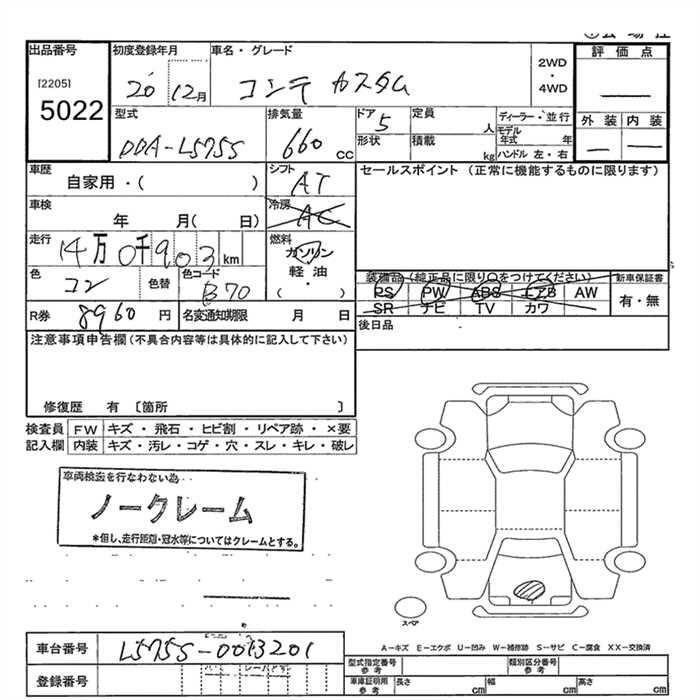 出品番号
[2205]
5022
初度登録年月
20 12月
車名・グレード
コンテ カスタム
2WD
・
4WD
評価点
—
外装 内装
— —
型式
DDA-L575S
排気量
660 cc
ドア
5
形状
定員
人
積載
kg
ディーラー・並行
モデル年式 年
ハンドル 左・右
車歴
自家用・( )
シフト
AT
セールスポイント (正常に機能するものに限ります)
車検
年 月( 日)
冷房
AC
走行
14万0千903km
燃料
ガソリン
軽油
( ・ )
色
コン
色替
色コード
B70
装備品(純正品に限り○をつけてください)
PS PW ABS エアB AW
SR ナビ TV カワ
新車保証書
有・無
R券
8960 円
名変通知期限 月 日
後日品
注意事項申告欄(不具合内容等は具体的に記入して下さい)
修復歴 有 〔箇所 〕
検査員 FW キズ・飛石・ヒビ割・リペア跡・×要
記入欄 内装 キズ・汚レ・コゲ・穴・スレ・キレ・破レ
車両検査を行なわない為
ノークレーム
*但し、走行距離・冠水等についてはクレームとする。
スペア
A-キズ E-エクボ U-凹み W-補修跡 S-サビ C-腐食 XX-交換済
車台番号
L575S-0013201
登録番号
型式指定番号 参考
類別区分番号 参考
車庫証明用 参考
長さ cm
幅 cm
高さ cm